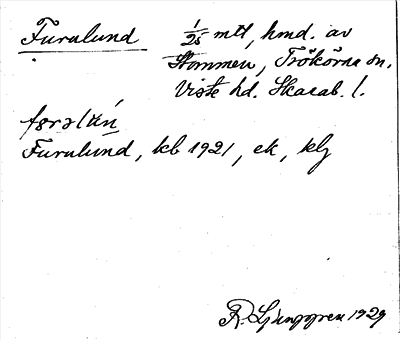 Furulund 1/25 mtl, hmd. av
Stommen, Trökörna sn.
Viste hd. Skarab. l.
Furulund, kb 1921, ek, klj
R. Ljunggren 1929